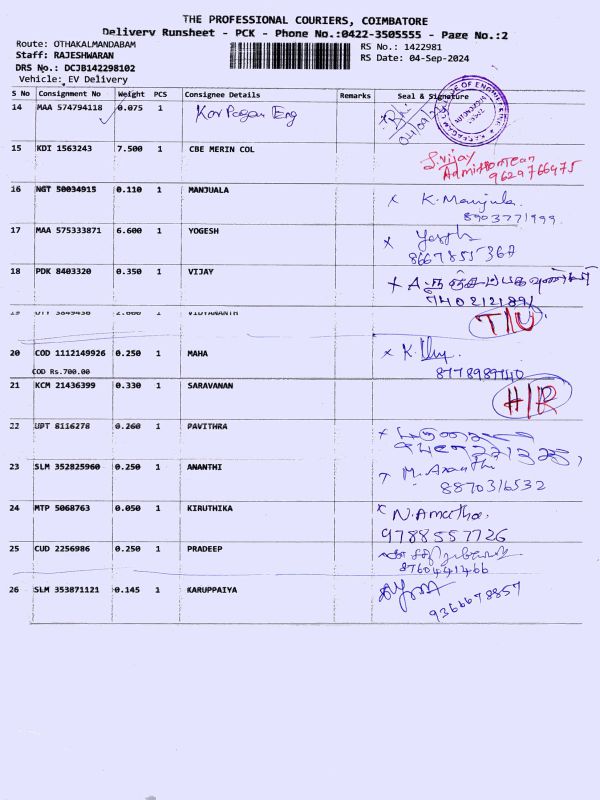 THE PROFESSIONAL COURIERS, COIMBATORE
Delivery Runsheet - PCK - Phone No.:0422-3505555 - Page No.:2
Route: OTHAKALMANDABAM
RS No.: 1422981
Staff: RAJESHWARAN
RS Date: 04-Sep-2024
DRS No.: DCJB142298102
Vehicle: EV Delivery
S No Consignment No Weight PCS Consignee Details Remarks Seal & Signature
14 MAA 574794118 0.075 1 Karpagam Eng
15 KDI 1563243 7.500 1 CBE MERIN COL
S.vijay
9629766975
16 NGT 50034915 0.110 1 MANJUALA x K. Manjula
8903771999
17 MAA 575333871 6.600 1 YOGESH x
8667855367
18 PDK 8403320 0.350 1 VIJAY
19 3849436 2.600 1 VIDYANANTH T/U
20 COD 1112149926 0.250 1 MAHA
COD Rs.700.00
8778989740
21 KCM 21436399 0.330 1 SARAVANAN H/R
22 UPT 8116278 0.260 1 PAVITHRA
23 SLM 352825960 0.250 1 ANANTHI M. Ananthi
8870316532
24 MTP 5068763 0.050 1 KIRUTHIKA x N. Amutha.
9788557726
25 CUD 2256986 0.250 1 PRADEEP
8760441466
26 SLM 353871121 0.145 1 KARUPPAIYA
9366678857